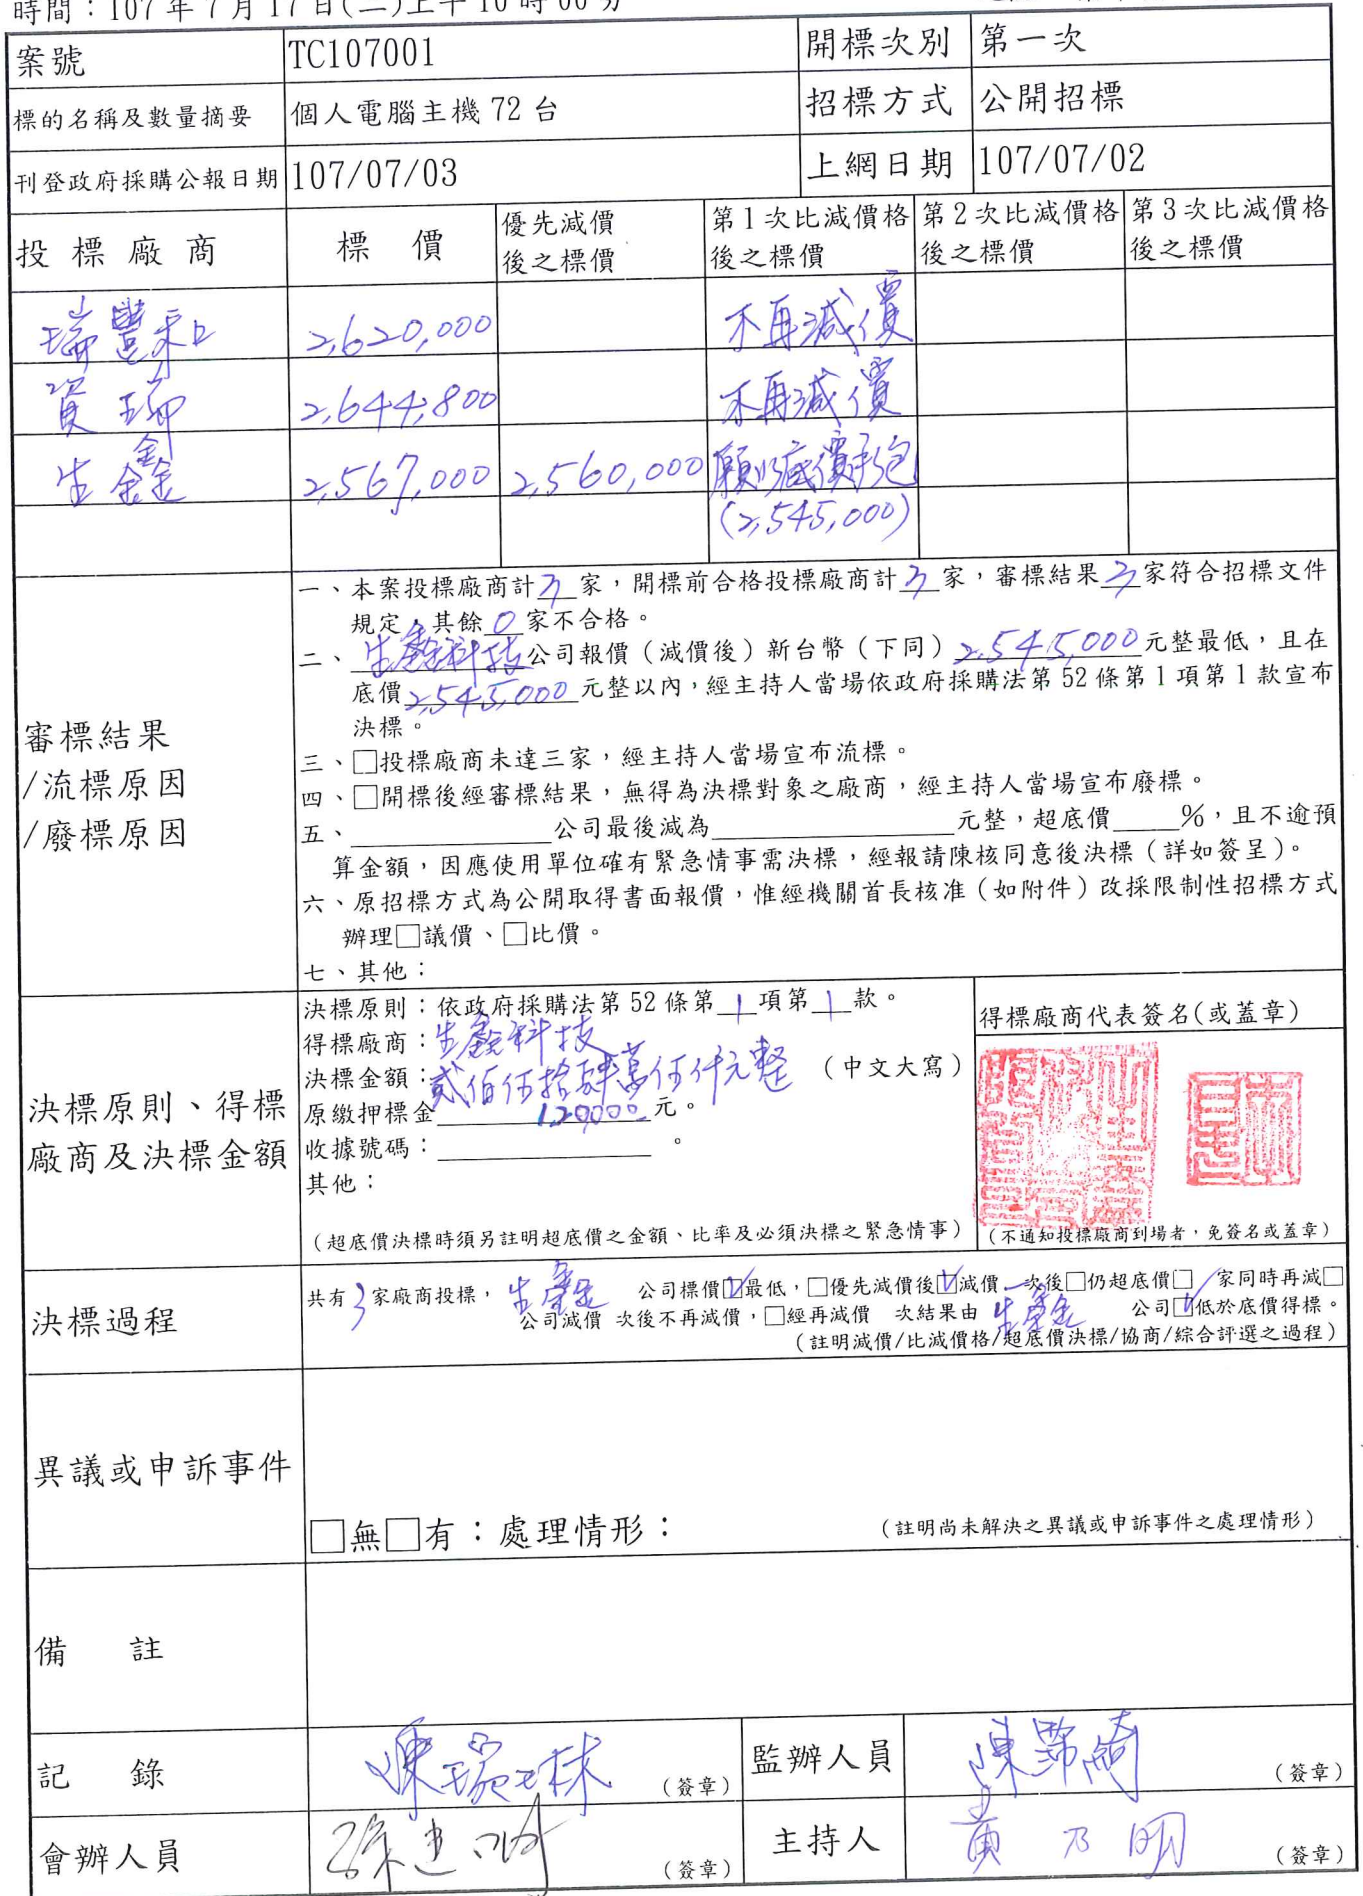 時間：107 年 7 月 17 日(二)上午 10 時 00 分
案號 TC107001 開標次別 第一次
標的名稱及數量摘要 個人電腦主機 72 台 招標方式 公開招標
刊登政府採購公報日期 107/07/03 上網日期 107/07/02
投標廠商 標價 優先減價後之標價 第1次比減價格後之標價 第2次比減價格後之標價 第3次比減價格後之標價
瑞豐和 2,620,000 不再減價
資琊 2,644,800 不再減價
生鑫 2,567,000 2,560,000 願以底價承包
(2,545,000)
審標結果
/流標原因
/廢標原因
一、本案投標廠商計 3 家，開標前合格投標廠商計 3 家，審標結果 3 家符合招標文件
規定，其餘 0 家不合格。
二、生鑫科技公司報價（減價後）新台幣（下同）2,545,000元整最低，且在
底價2,545,000元整以內，經主持人當場依政府採購法第 52 條第 1 項第 1 款宣布
決標。
三、□投標廠商未達三家，經主持人當場宣布流標。
四、□開標後經審標結果，無得為決標對象之廠商，經主持人當場宣布廢標。
五、____公司最後減為____元整，超底價____%，且不逾預
算金額，因應使用單位確有緊急情事需決標，經報請陳核同意後決標（詳如簽呈）。
六、原招標方式為公開取得書面報價，惟經機關首長核准（如附件）改採限制性招標方式
辦理□議價、□比價。
七、其他：
決標原則、得標
廠商及決標金額
決標原則：依政府採購法第 52 條第 1 項第 1 款。
得標廠商：生鑫科技
決標金額：貳佰伍拾肆萬伍仟元整 （中文大寫）
原繳押標金 120,000 元。
收據號碼：____。
其他：
（超底價決標時須另註明超底價之金額、比率及必須決標之緊急情事）
得標廠商代表簽名(或蓋章)
（不通知投標廠商到場者，免簽名或蓋章）
決標過程
共有 3 家廠商投標，生鑫 公司標價☑最低，□優先減價後☑減價一次後□仍超底價□ 家同時再減□
公司減價 次後不再減價，□經再減價 次結果由 生鑫 公司☑低於底價得標。
（註明減價/比減價格/超底價決標/協商/綜合評選之過程）
異議或申訴事件
□無□有：處理情形： （註明尚未解決之異議或申訴事件之處理情形）
備 註
記 錄 陳瑞琳 （簽章） 監辦人員 （簽章）
會辦人員 （簽章） 主持人 黃乃明 （簽章）